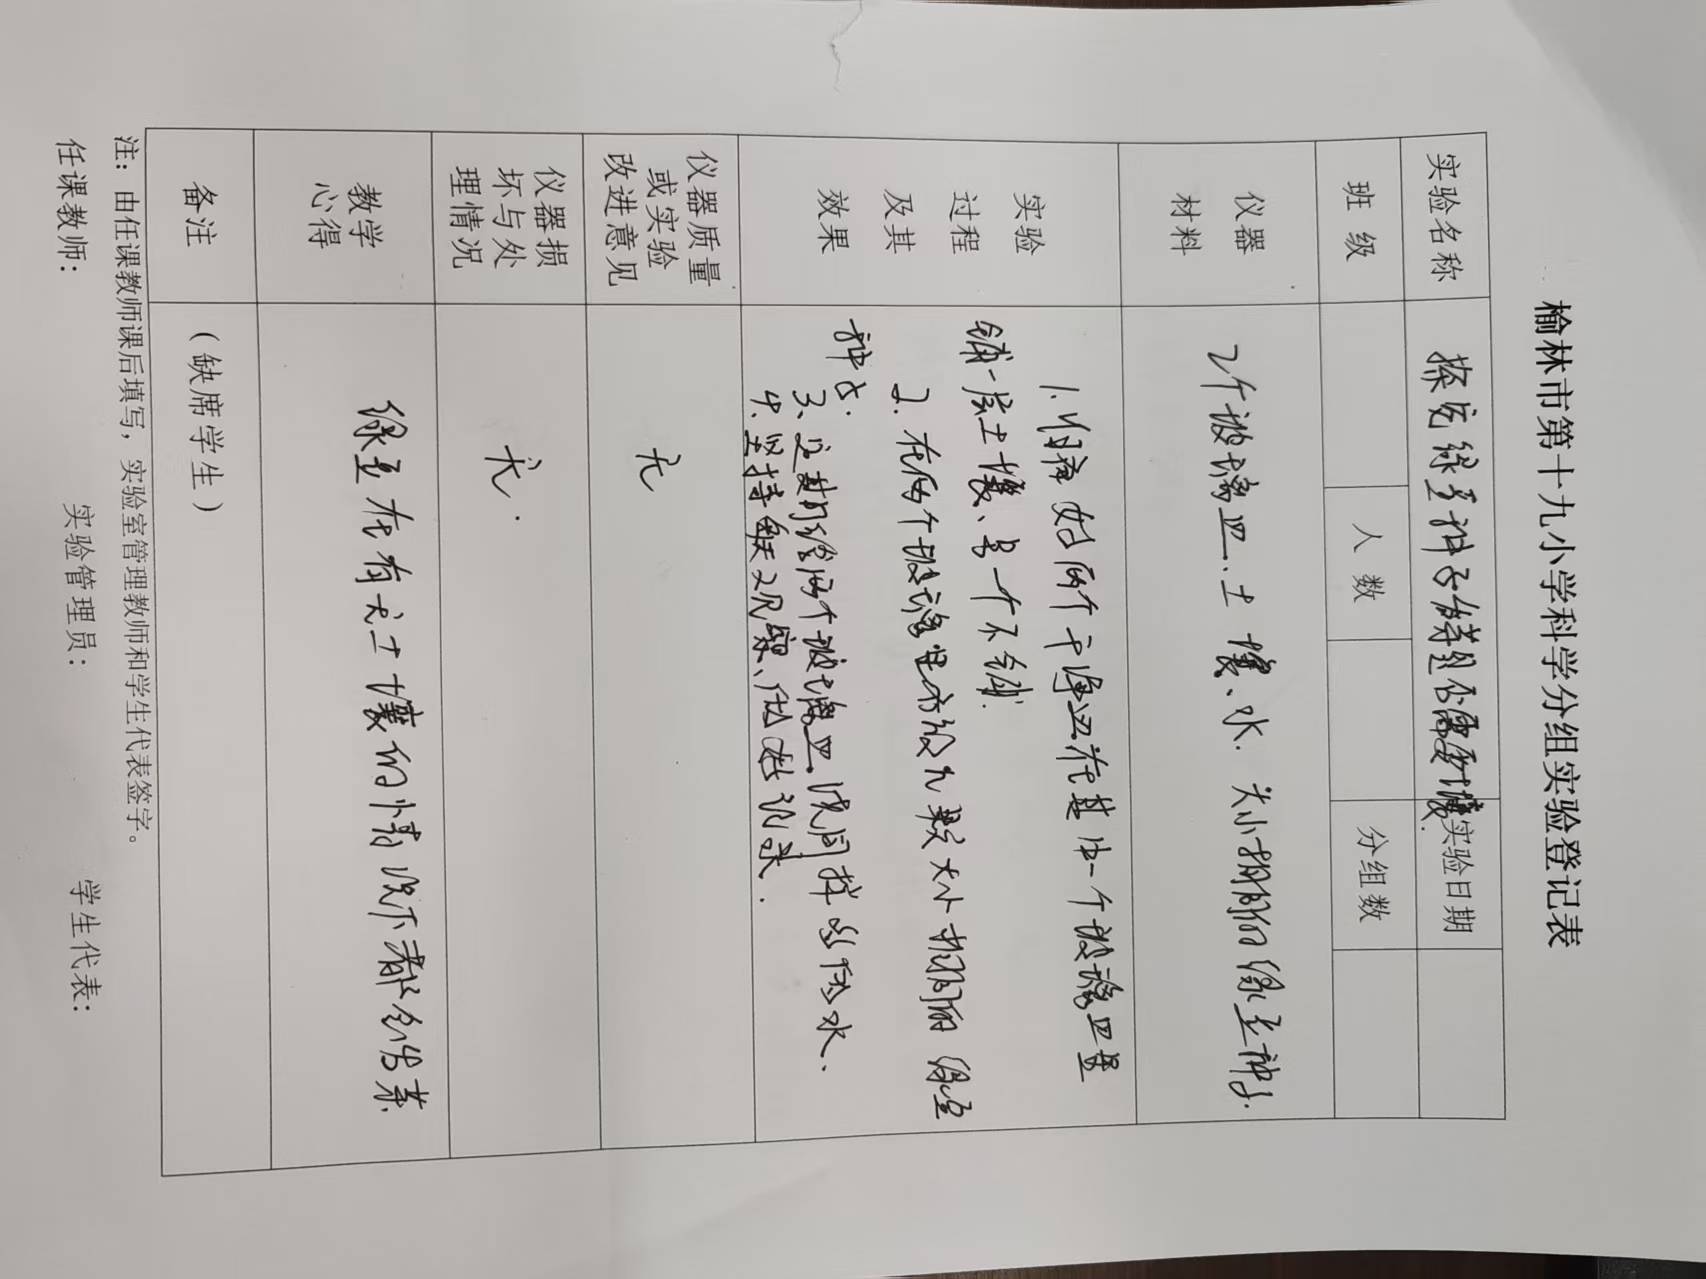 榆林市第十九小学科学分组实验登记表
实验名称 探究绿豆种子发芽是否需要土壤. 实验日期
班 级 人 数 分组数
仪器
材料
2个玻璃皿.土 壤、水. 大小相同的 绿豆种子.
实验
过程
及其
效果
1.准备 好两个干净皿在其中一个玻璃皿里
铺一层土壤、另一个不铺.
2.在两个玻璃皿中放几颗大小相同的 绿豆
种子.
3.定期给两个玻璃皿浇同样多的水.
4.坚持每天观察、做好记录.
仪器质量
或实验
改进意见
无
仪器损
坏与处
理情况
无.
教学
心得
绿豆在有无土壤的情况下都会发芽.
备注
（缺席学生）
注：由任课教师课后填写，实验室管理教师和学生代表签字。
任课教师： 实验管理员： 学生代表：